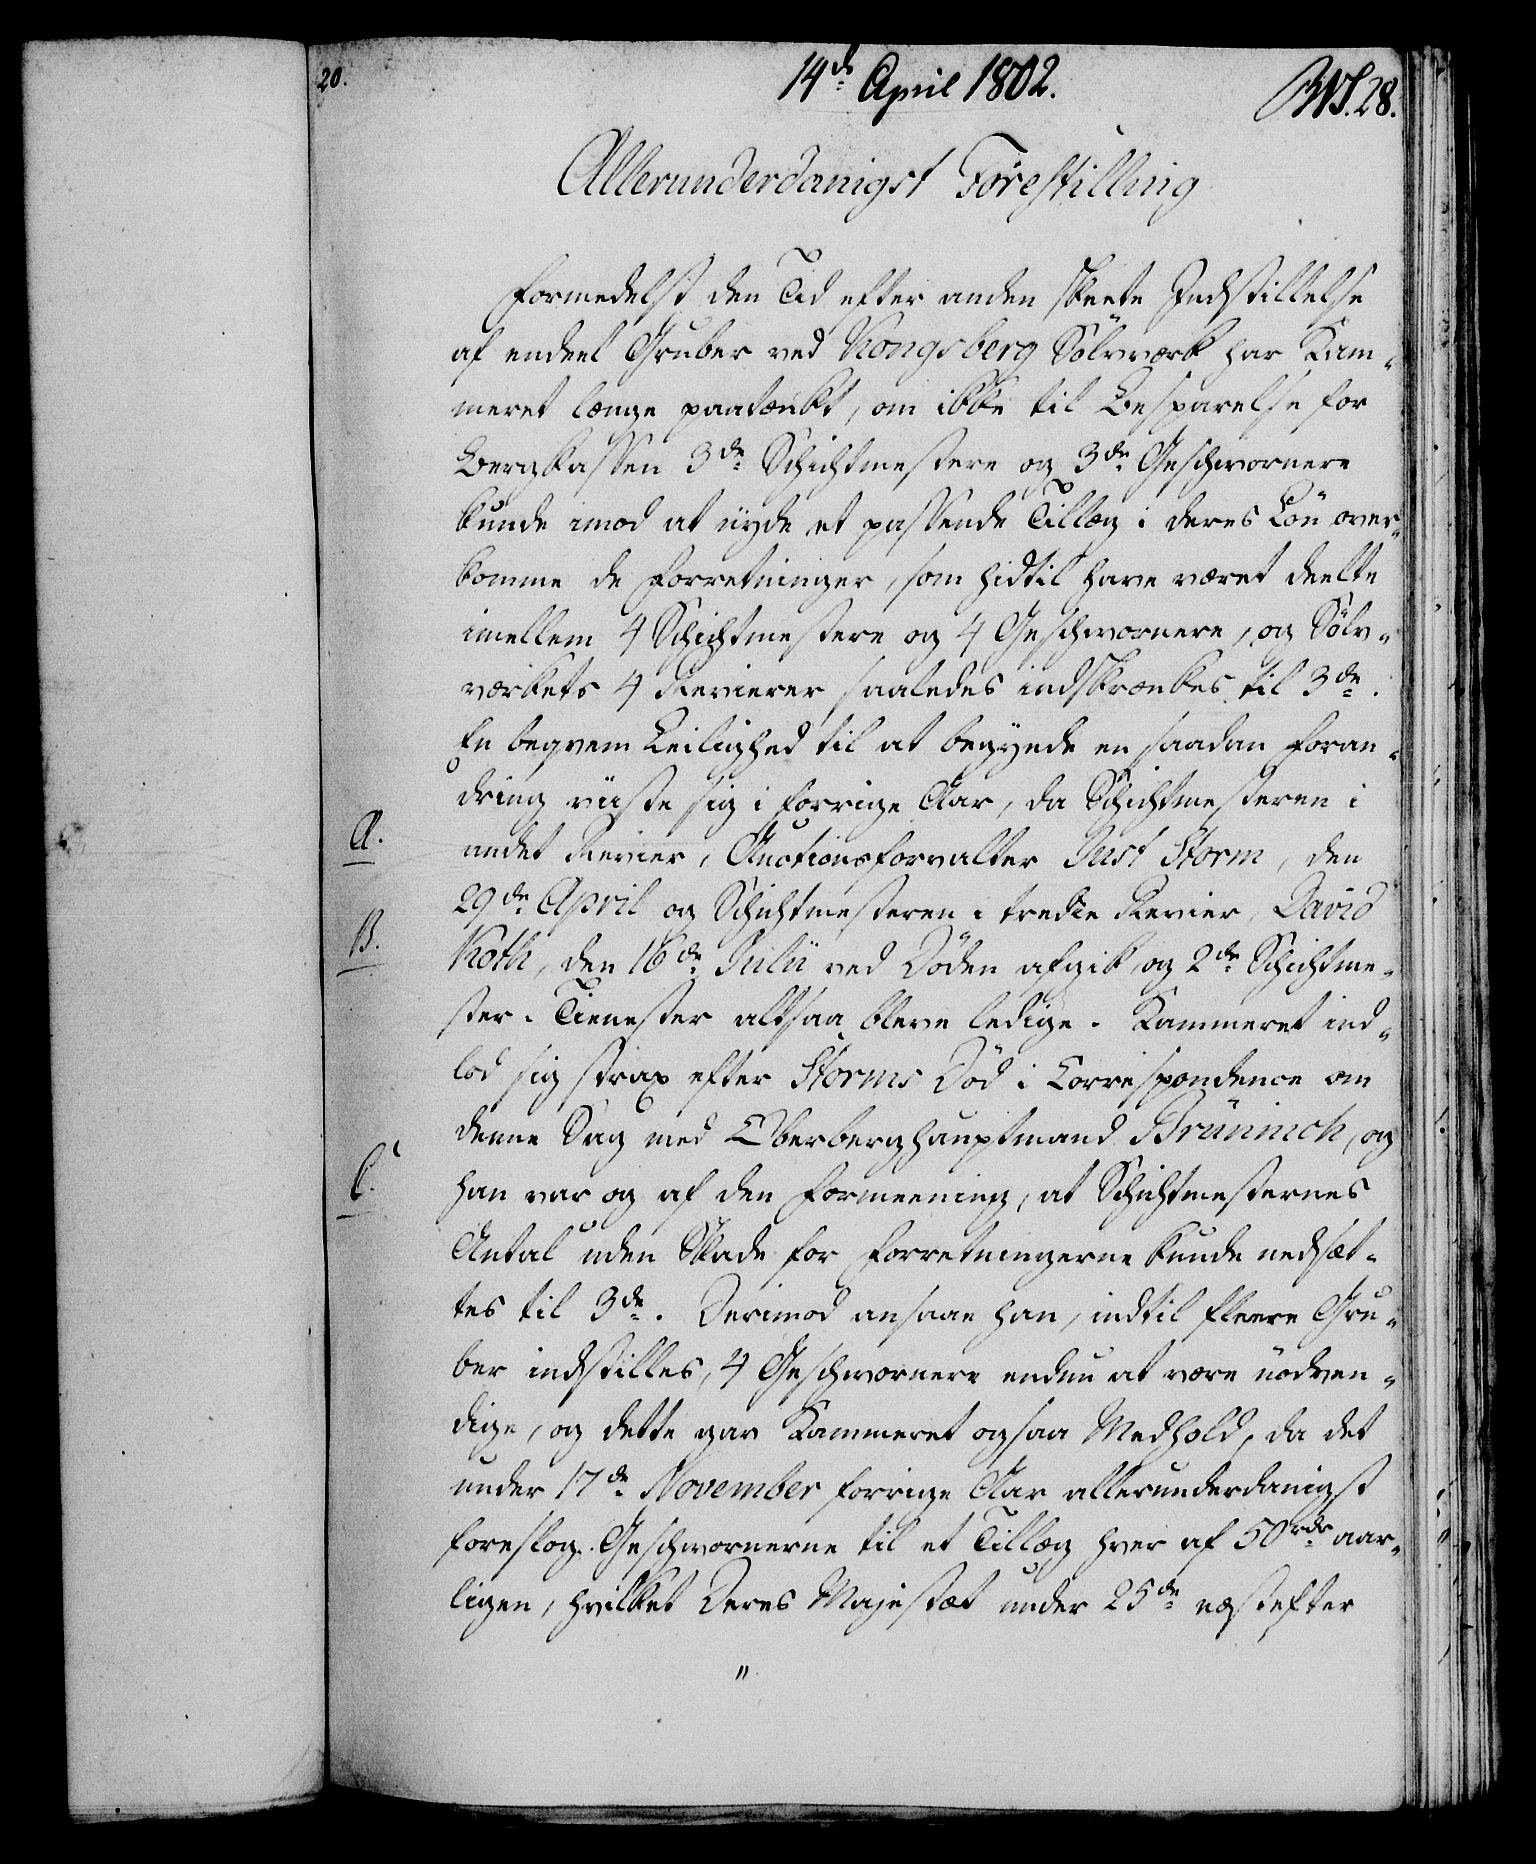 20.
14de April 1802.
No. 28.
Allerunderdanigst Forestilling
Formedelst den Tid efter anden skeete Indstillelse
af endeel Gruber ved Kongsberg Sölvværk har Kam-
meret længe paatænkt, om ikke til Besparelse for
Bergkassen 3de Schichtmestere og 3de Geschwornere
kunde imod at nyde et passende Tillæg i deres Lön over-
komme de Forretninger, som hidtil have været deelte
imellem 4 Schichtmestere og 4 Geschwornere, og Sölv-
værkets 4 Revierer saaledes indskrænkes til 3de.
En beqvem Leilighed til at begynde en saadan Foran-
dring viiste sig i forrige Aar, da Schichtmesteren i
A.
andet Revier, Auctionsforvalter Just Storm, den
29de April og Schichtmesteren i tredie Revier, David
B.
Koth, den 16de Julii ved Döden afgik, og 2de Schichtme-
ster-Tienester altsaa bleve ledige. Kammeret ind-
lod sig strax efter Storms Död i Correspondence om
denne Sag med Oberberghauptmand Brünnich, og
C.
han var og af den Formeening, at Schichtmesternes
Antal uden Skade for Forretningerne kunde nedsæt-
tes til 3de. Derimod ansaae han, indtil fleere Gru-
ber indstilles, 4 Geschwornere endnu at være nödven-
dige, og dette gav Kammeret ogsaa Medhold, da det
under 17de November forrige Aar allerunderdanigst
foreslog Geschwornerne til et Tillæg hver af 50 rdr aar-
ligen, hvilket Deres Majestæt under 25de næstefter
"